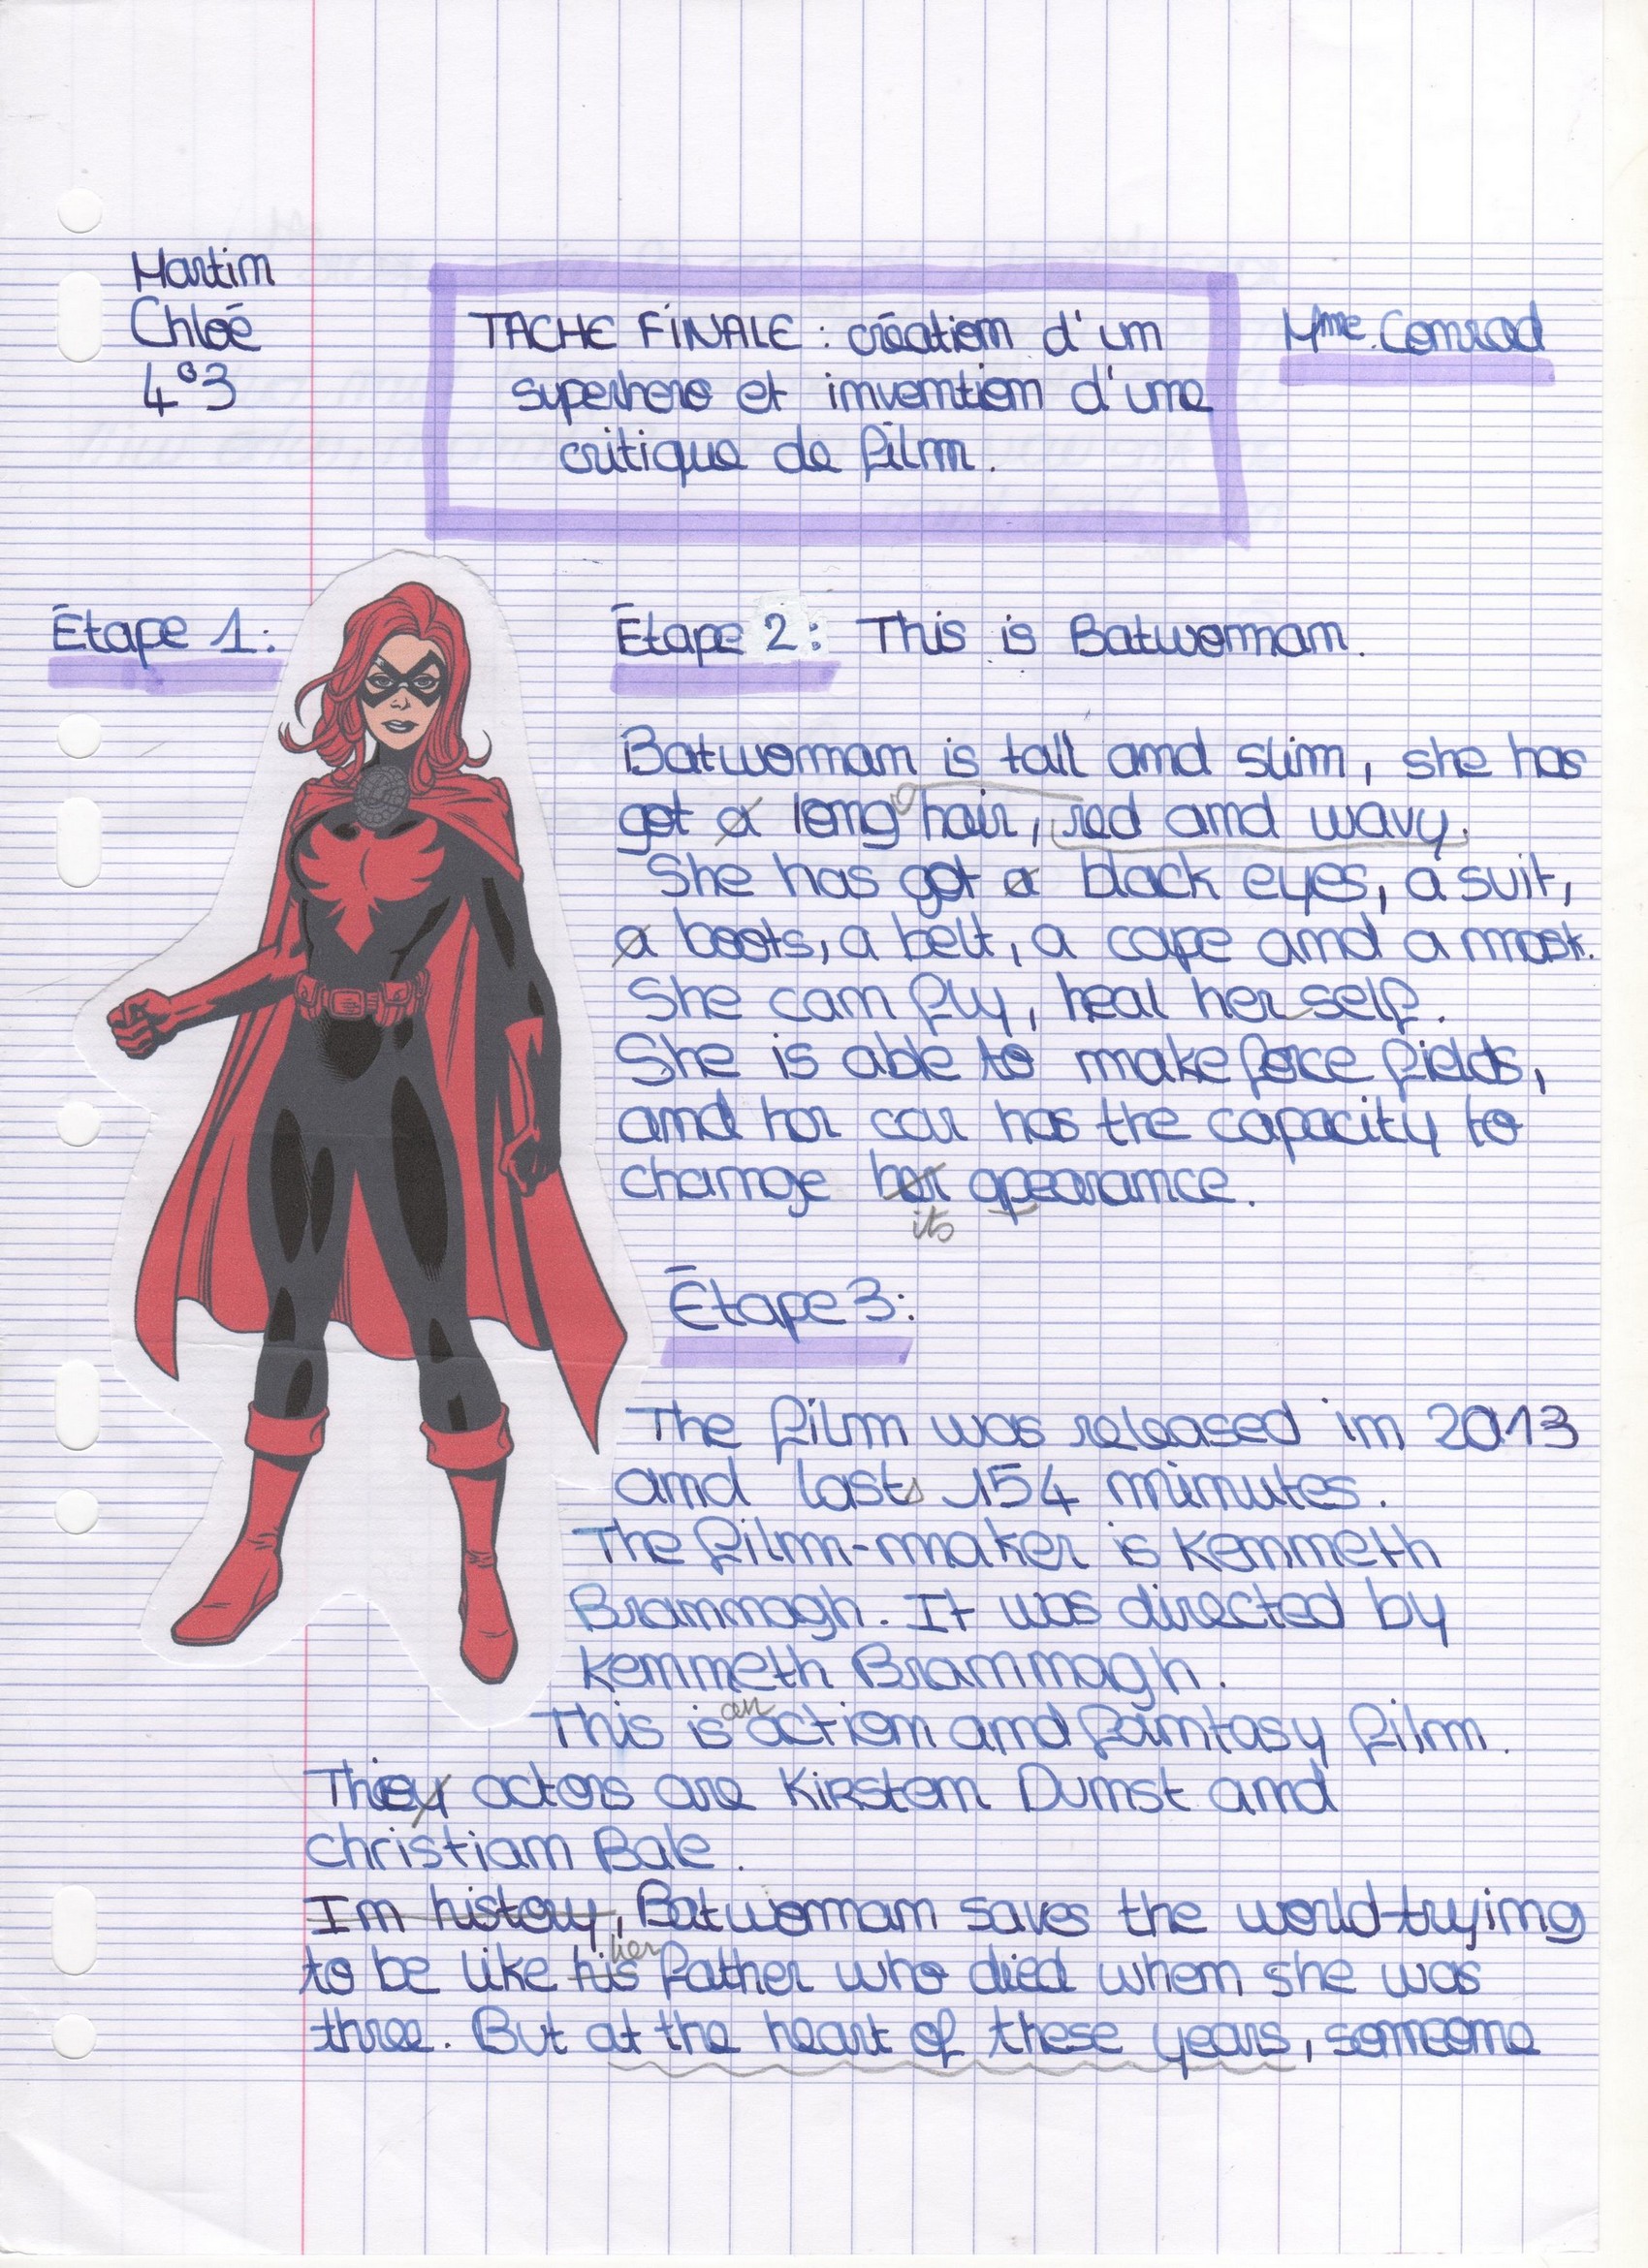 Martin
Chloé
4°3
TACHE FINALE : création d'un
superhero et invention d'une
critique de film.
Mme. Conrad
Étape 1:
Étape 2: This is Batwoman.
Batwoman is tall and slim, she has
got a long hair, red and wavy.
She has got a black eyes, a suit,
a boots, a belt, a cape and a mask.
She can fly, heal her self.
She is able to make force fields,
and her car has the capacity to
change her apearance.
its
Étape 3:
The film was released in 2013
and lasts 154 minutes.
The film-maker is Kenneth
Brannagh. It was directed by
Kenneth Brannagh.
an
This is action and fantasy film.
They actors are Kirsten Dunst and
christian Bale.
In history, Batwoman saves the world trying
her
to be like his father who died when she was
three. But at the heart of these years, someone